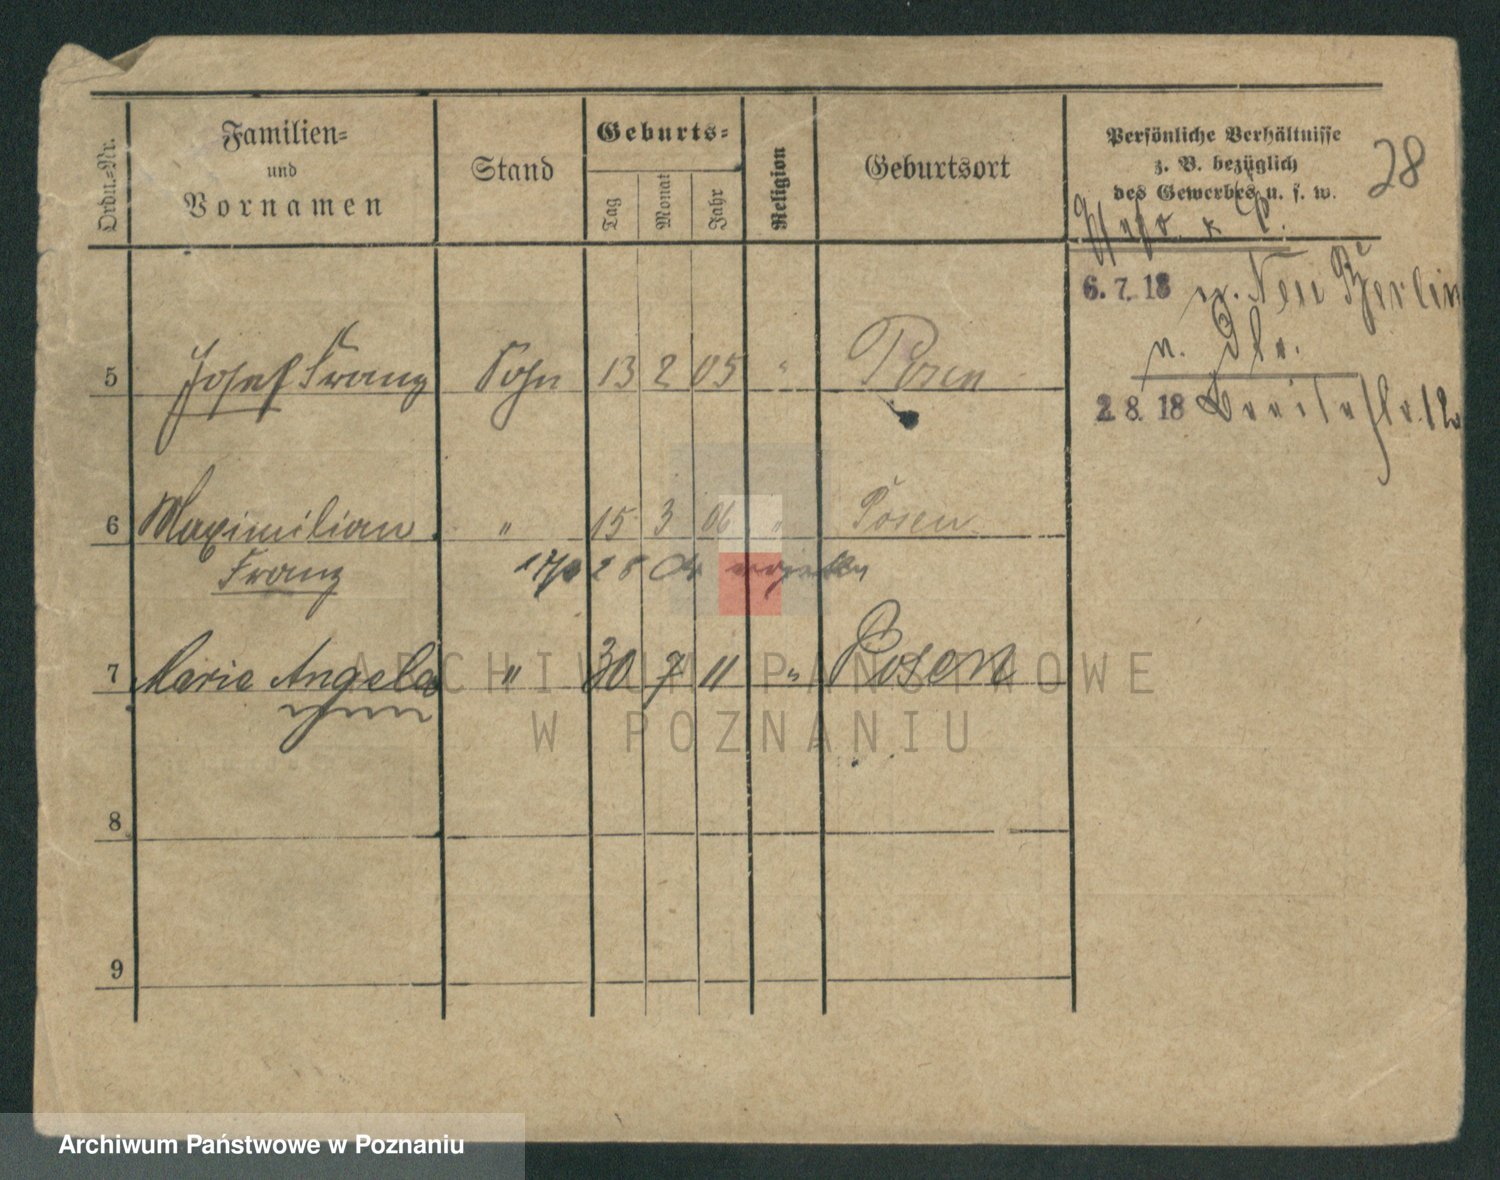 Ordn.-Nr.
Familien-
und
Vornamen
Stand
Geburts-
Tag
Monat
Jahr
Religion
Geburtsort
Persönliche Verhältnisse
z. B. bezüglich
des Gewerbes u. s. w.
28
6. 7. 18 n. Neu Berlin
n.
2. 8. 18 Breitestr. 12
5 Josef Franz Sohn 13 2 05 " Posen
6 Maximilian " 15 3 06 " Posen
Franz
7 Marie Angela " 30 7 11 " Posen
8
9
ARCHIWUM PAŃSTWOWE
W POZNANIU
Archiwum Państwowe w Poznaniu